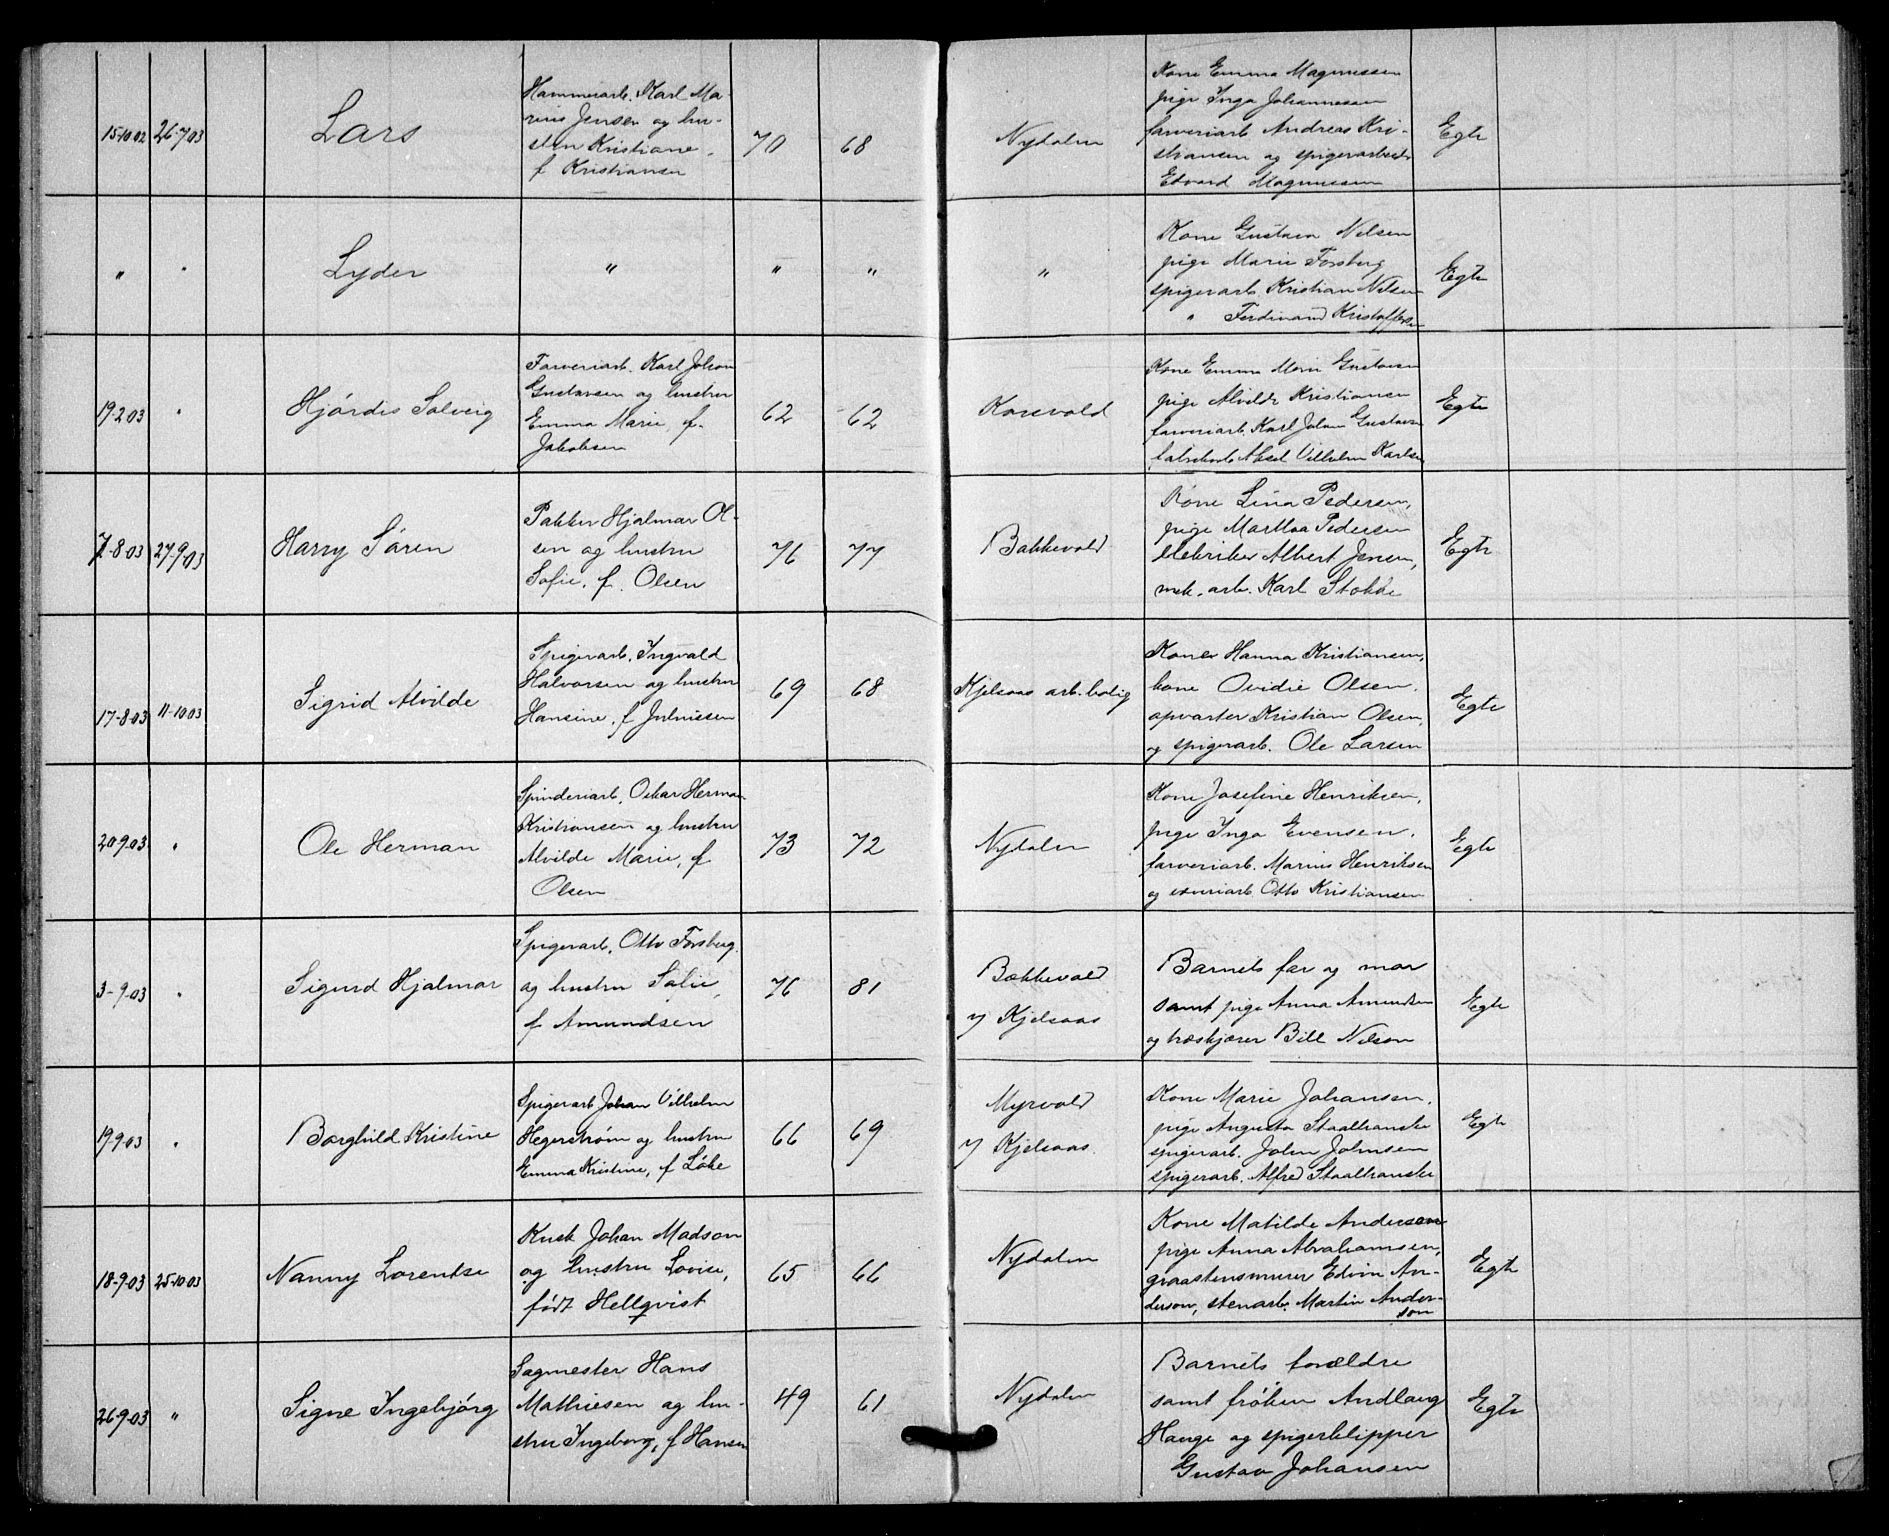 15-10.02 26-7.03 Lars
Hammerarb. Karl Ma-
rius Jensen og hu-
stru Kristiane,
f Kristiansen
70 68 Nydalen
Kone Emma Magnussen
pige Inga Johannessen
farveriarb Andreas Kri-
stiansen og spigerarbeider
Edvard Magnussen
Egte
" " Lyder " " " "
Kone Gustava Nilsen
pige Marie Forsberg
spigerarb Kristian Nilsen
" Ferdinand Kristoffersen
Egte
19.2.03 " Hjórdis Solveig
Farveriarb. Karl Johan
Gustavsen og hustru
Emma Marie, f.
Jakobsen
62 62 Korsvold
Kone Emma Marie Gustavsen
pige Alvilde Kristiansen
farveriarb. Karl Johan Gustavsen
fabrikarb Aksel Vilhelm Karlsen
Egte
7-8.03 27-9.03 Harry Sóren
Pakker Hjalmar Ol-
sen og hustru
Sofie, f. Olsen
76 77 Bakkevold
Kone Lina Pedersen,
pige Martha Pedersen
elektriker Albert Jensen,
mek. arb. Karl Stokke
Egte
17-8.03 11-10.03 Sigrid Alvilde
Spigerarb. Ingvald
Halvorsen og hustru
Hansine, f Juliussen
69 68 Kjelsaas arb. bolig
Koner Hanna Kristiansen,
kone Ovidie Olsen,
opvarter Kristian Olsen,
og spigerarb. Ole Larsen
Egte
20-9.03 " Ole Herman
Spinderiarb. Oskar Herman
Kristiansen og hustru
Alvilde Marie, f
Olsen
73 72 Nydalen
Kone Josefine Henriksen,
pige Inga Evensen,
farveriarb. Marius Henriksen
og væveriarb Otto Kristiansen
Egte
3-9.03 " Sigurd Hjalmar
Spigerarb. Otto Forsberg
og hustru Sofie,
f Amundsen
76 81
Bakkevold
v/ Kjelsaas
Barnets far og mor
samt pige Anna Amundsen
og træskjærer Bill Nilsen
Egte
19.9.03 " Borghild Kristine
Spigerarb Johan Vilhelm
Hegerstrøm og hustru
Emma Kristine, f Lóke
66 69
Myrvold
v/ Kjelsaas
Kone Marie Johansen,
pige Augusta Staalhanske
spigerarb. John Johnsen
spigerarb. Alfred Staalhanske
Egte
18-9.03 25-10.03 Nanny Lorentse
Kusk Johan Madson
og hustru Lovise,
født Hellqvist
65 66 Nydalen
Kone Matilde Anderson
pige Anna Abrahamsen,
graastensmurer Edvin An-
derson, stenarb. Martin Ander-
son
Egte
26-9.03 " Signe Ingebjórg
Sagmester Hans
Mathiesen og hu-
stru Ingeborg, f Hansen
49 61 Nydalen
Barnets forældre
samt fróken Andlaug
Hauge og spigerklipper
Gustav Johansen
Egte